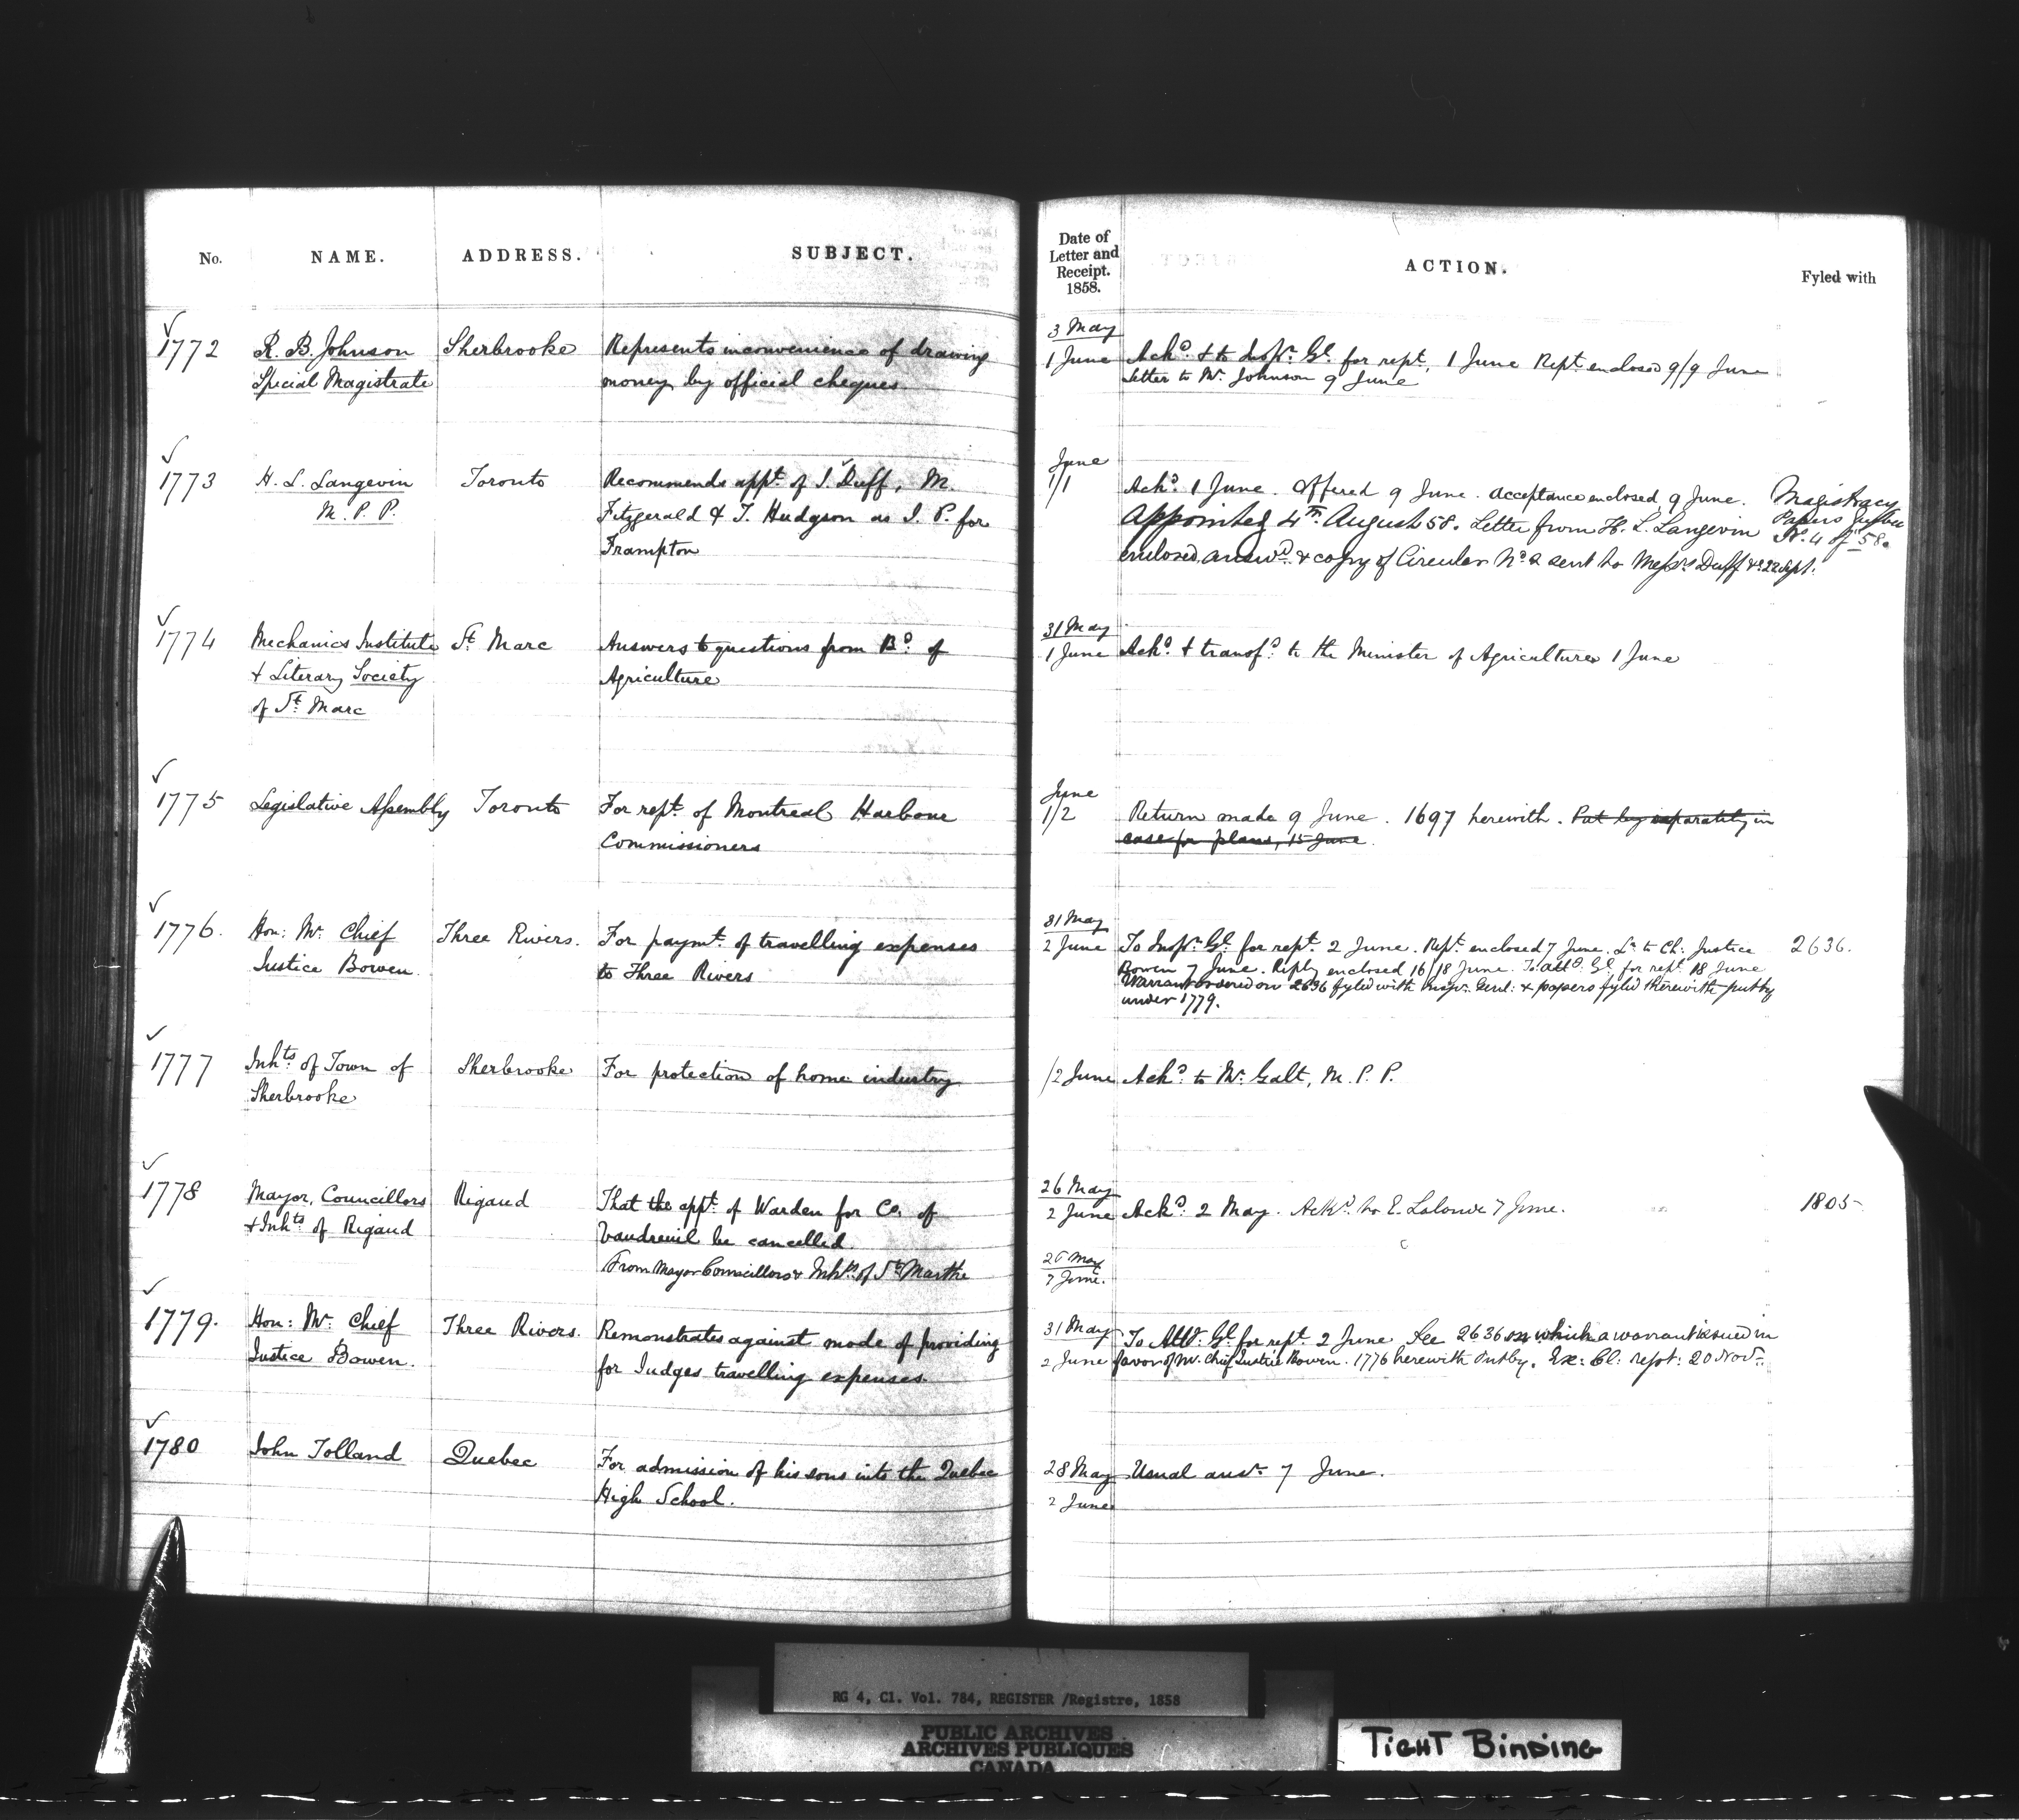 No. NAME. ADDRESS. SUBJECT.
Date of Letter and Receipt. 1858. ACTION. Fyled with
1772 R. B. Johnson Sherbrooke Represents inconvenience of drawing
Special Magistrate money by official cheques
3 May
1 June Ackd. & to Inspr. Gl. for rept. 1 June Rept. enclosed 9/9 June
Letter to Mr. Johnson 9 June
1773 H. L. Langevin Toronto Recommends appt. of J. Duff, M.
M.P.P. Fitzgerald & T. Hudgson as J. P. for
Frampton
June
1/1 Ackd. 1 June. Offered 9 June. Acceptance enclosed 9 June. Magistracy
Appointed 4th August 58. Letter from H. L. Langevin Papers Quebec
enclosed answd. & copy of Circular No. 2 sent to Messrs Duff &c 22 Sept. No. 4 of 58.
1774 Mechanics Institute St. Marc Answers to questions from Bd. of
& Literary Society Agriculture
of St. Marc
31 May
1 June Ackd. & transfd. to the Minister of Agriculture 1 June
1775 Legislative Assembly Toronto For rept. of Montreal Harbour
Commissioners
June
1/2 Return made 9 June. 1697 herewith. Put by separately in
case for plans, 15 June
1776. Hon: Mr. Chief Three Rivers. For paymt. of travelling expenses
Justice Bowen. to Three Rivers
31 May
2 June To Inspr. Gl. for rept. 2 June. Rept. enclosed 7 June. Lr. to Ch: Justice 2636.
Bowen 7 June. Reply enclosed 16/18 June. To Atty. Gl. for rept. 18 June
Warrant ordered on 2636 fyled with Inspr. Genl: & papers fyled therewith put by
under 1779.
1777 Inhts of Town of Sherbrooke For protection of home industry
Sherbrooke
/2 June Ackd. to Mr. Galt, M.P.P.
1778 Mayor, Councillors Rigaud That the appt. of Warden for Co. of
& Inhts of Rigaud Vaudreuil be cancelled.
From Mayor Councillors & Inhts. of Ste Marthe
26 May
2 June Ackd. 2 May. Ackd. to E. Lalonde 7 June. 1805
7 June.
1779. Hon: Mr. Chief Three Rivers. Remonstrates against mode of providing
Justice Bowen. for Judges travelling expenses.
31 May To Atty. Gl. for rept. 2 June See 2636 on which a warrant issued in
2 June favor of Mr. Chief Justice Bowen. 1776 herewith Put by. Ex: Cl: rept: 20 Novr.
1780 John Tolland Quebec For admission of his sons into the Quebec
High School.
28 May Usual answr. 7 June.
2 June
RG 4, C1. Vol. 784, REGISTER /Registre, 1858
PUBLIC ARCHIVES
ARCHIVES PUBLIQUES
CANADA
TIGHT BINDING